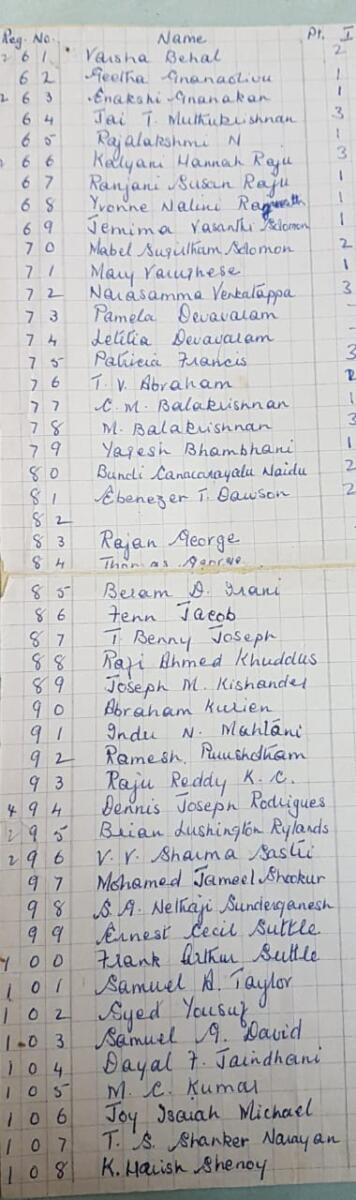 Reg. No. Name Pt. I
2 6 1 Varsha Behal 2
6 2 Geetha Gnanaolivu 1
2 6 3 Enakshi Gnanakan 1
6 4 Jai T. Muthukrishnan 3
6 5 Rajalakshmi N 1
6 6 Kalyani Hannah Raju 3
6 7 Ranjani Susan Raju 1
6 8 Yvonne Nalini 1
6 9 Jemima Vasanthi Solomon 1
7 0 Mabel Sugutham Solomon 2
7 1 Mary Varughese 1
7 2 Narasamma Venkatappa 3
7 3 Pamela Devavaram
7 4 Letitia Devavaram
7 5 Patricia Francis 3
7 6 T. V. Abraham 2
7 7 C. M. Balakrishnan 1
7 8 M. Balakrishnan 3
7 9 Yagesh Bhambhani 1
8 0 Bundi Naidu 2
8 1 Ebenezer T. Dawson 2
8 2
8 3 Rajan George
8 4 Thomas George
8 5 Beram D. Irani
8 6 Fenn Jacob
8 7 T. Benny Joseph
8 8 Rafi Ahmed Khuddus
8 9 Joseph M. Kishander
9 0 Abraham Kurien
9 1 Indu N. Mahtani
9 2 Ramesh Purushotham
9 3 Raju Reddy K. C.
4 9 4 Dennis Joseph Rodrigues
2 9 5 Brian Lushington Rylands
2 9 6 V. V. Sharma Sastri
9 7 Mohamed Jameel Shookur
9 8 S. A. Nethaji Sunderganesh
9 9 Ernest Cecil Suttle
1 0 0 Frank Arthur Suttle
1 0 1 Samuel A. Taylor
1 0 2 Syed Yousuf
1 0 3 Samuel G. David
1 0 4 Dayal F. Jaindhani
1 0 5 M. C. Kumar
1 0 6 Joy Isaiah Michael
1 0 7 T. S. Shanker Narayan
1 0 8 K. Harish Shenoy